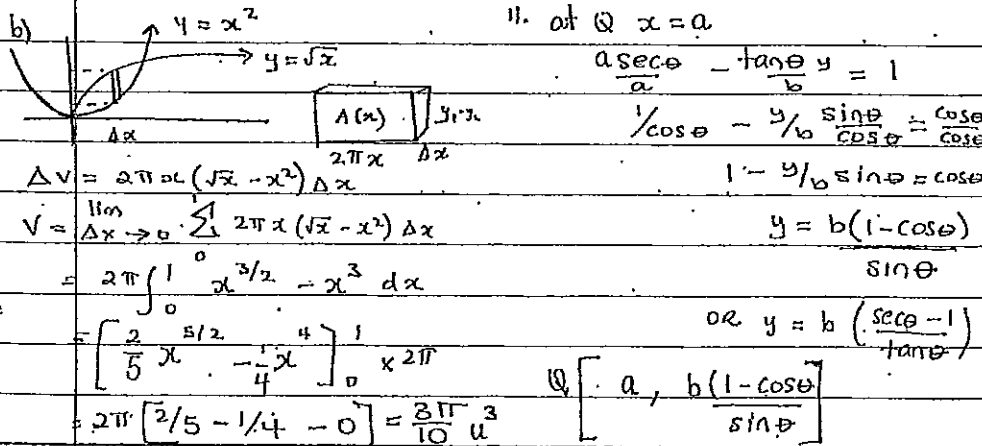 b)
y = x²
y = √x
Δx
A(x)
y₁-y₂
2πx
Δx
ΔV = 2πx(√x - x²)Δx
V = lim Δx→0 Σ₀¹ 2πx(√x - x²)Δx
= 2π∫₀¹ x^{3/2} - x³ dx
= [2/5 x^{5/2} - 1/4 x⁴]₀¹ × 2π
= 2π[2/5 - 1/4 - 0] = 3π/10 u³
11. at Q x = a
a secθ/a - tanθ/b y = 1
1/cosθ - y/b sinθ/cosθ = cosθ/cosθ
1 - y/b sinθ = cosθ
y = b(1-cosθ)/sinθ
OR y = b (secθ-1/tanθ)
Q[a, b(1-cosθ)/sinθ]